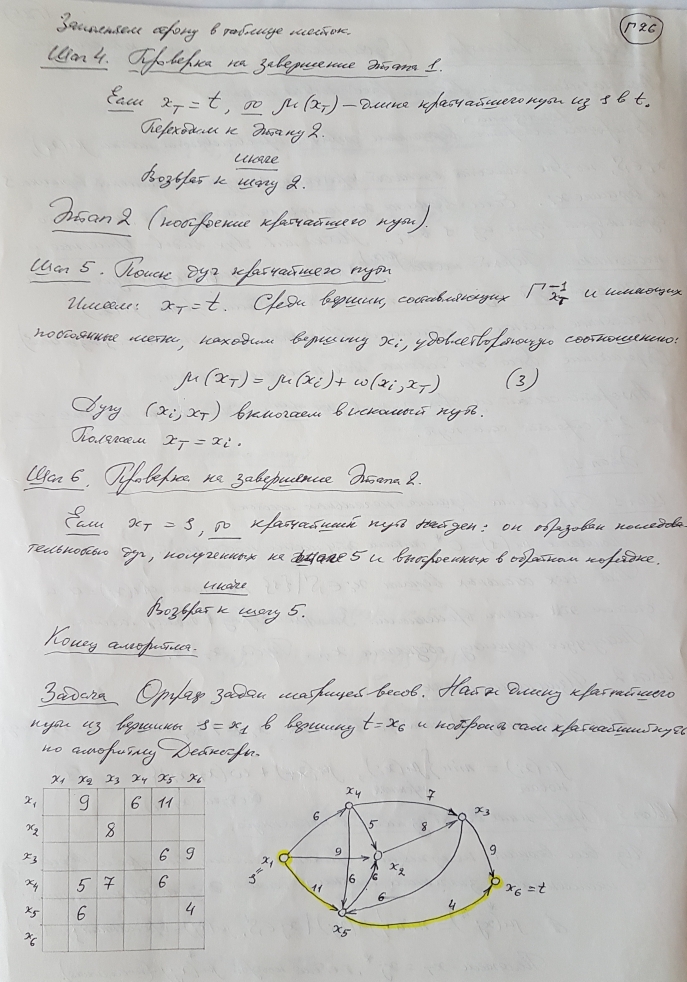 Г26
Заполняем строку в таблице меток.
Шаг 4. Проверка на завершение этапа 1.
Если x_T = t, то μ(x_T) – длина кратчайшего пути из s в t.
Переходим к Этапу 2.
иначе
Возврат к шагу 2.
Этап 2 (построение кратчайшего пути).
Шаг 5. Поиск дуг кратчайшего пути
Имеем: x_T = t. Среди вершин, составляющих Γ^{-1}_{x_T} и имеющих
постоянные метки, находим вершину x_i, удовлетворяющую соотношению:
μ(x_T) = μ(x_i) + ω(x_i, x_T) (3)
Дугу (x_i, x_T) включаем в искомый путь.
Полагаем x_T = x_i.
Шаг 6. Проверка на завершение Этапа 2.
Если x_T = s, то кратчайший путь найден: он образован последова-
тельностью дуг, полученных на шаге 5 и выстроенных в обратном порядке.
иначе
Возврат к шагу 5.
Конец алгоритма.
Задача Орграф задан матрицей весов. Найти длину кратчайшего
пути из вершины s = x_1 в вершину t = x_6 и сам кратчайший путь
по алгоритму Дейкстры.
x_1 x_2 x_3 x_4 x_5 x_6
x_1 9 6 11
x_2 8
x_3 6 9
x_4 5 7 6
x_5 6 4
x_6
x_4 7 x_3
6 5 8 9
x_1 9 x_2
s= 6 6 x_6 = t
11 6 4
x_5